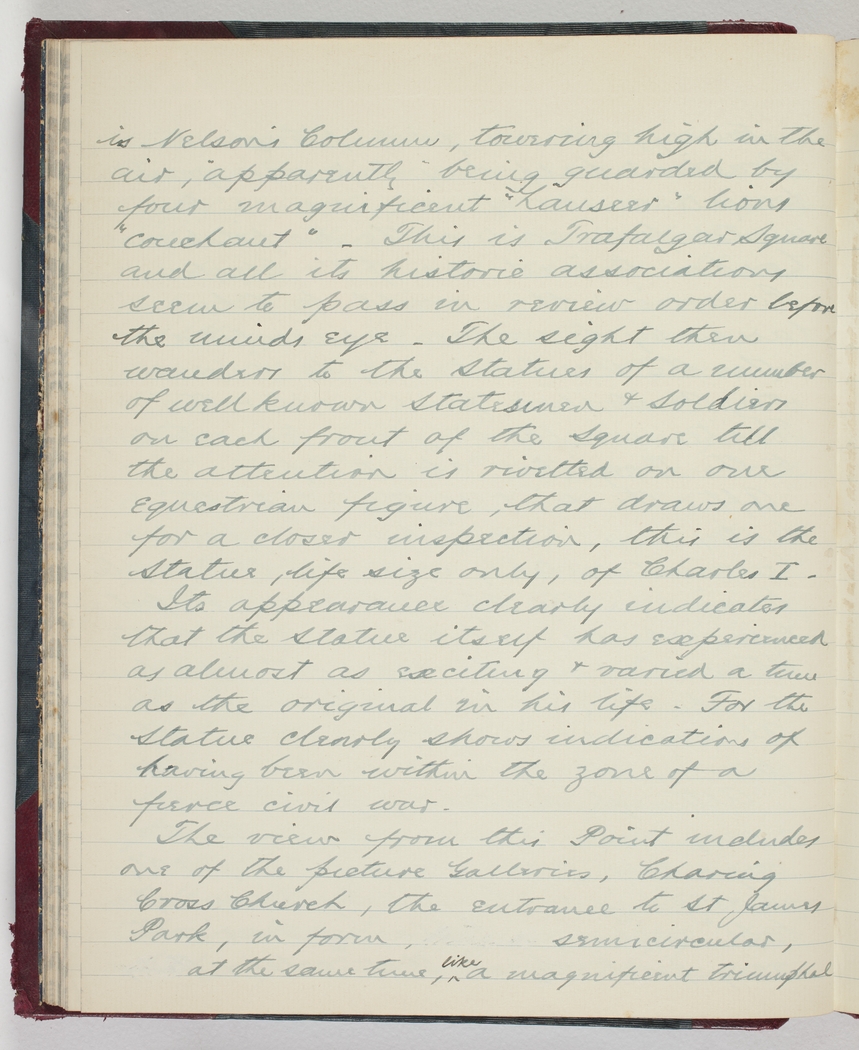 is Nelson's Column, towering high in the
air, "apparently" being guarded by
four magnificent "Lanseer" lions
"couchant". - This is Trafalgar Square
and all its historic associations
seem to pass in review order before
the minds eye - The sight then
wanders to the Statues of a number
of well known Statesmen & Soldiers
on each front of the Square till
the attention is rivetted on one
Equestrian figure, that draws one
for a closer inspection, this is the
Statue, life size only, of Charles I -
Its appearance clearly indicates
that the Statue itself has experienced
as almost as exciting & varied a time
as the original in his life - For the
Statue clearly shows indications of
having been within the zone of a
fierce civil war -
The view from this Point includes
one of the picture Galleries, Charing
Cross Church, the entrance to St James
Park, in form, semicircular,
at the same time, like a magnificent triumphal